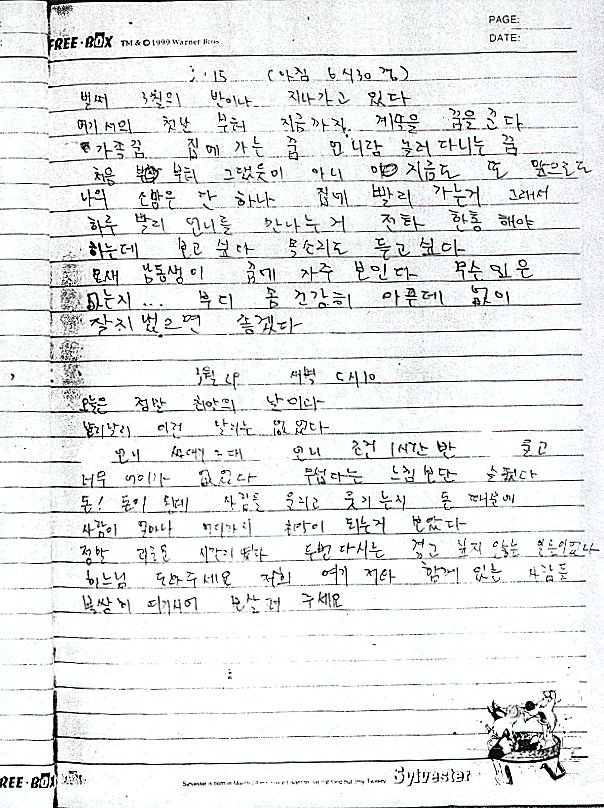 PAGE:
DATE:
FREE·BOX TM & © 1999 Warner Bros
3.15 (아침 6시30분)
벌써 3월의 반이나 지나가고 있다
여기서의 첫날 부터 지금까지 계속을 꿈을 꾼다
가족꿈 집에 가는 꿈 언니랑 놀러다니는 꿈
처음 부터 그랬듯이 아니 지금도 또 앞으로도
나의 소망은 단 하나 집에 빨리 가는거 그래서
하루 빨리 언니를 만나는거 전화 한통 해야
하는데 보고 싶다 목소리도 듣고 싶다
요새 남동생이 꿈에 자주 보인다 무슨일은
없는지... 부디 몸 건강히 아픈데 없이
잘 지냈으면 좋겠다
3월 29 새벽 5시10
오늘은 정말 최악의 날이다
이런 날리는 없었다
언니 언니 1시간 반
너무 어이가 없었다 무섭다는 느낌 보단 슬펐다
돈! 돈이 뭔데 사람을 울리고 웃기는지 돈 때문에
사람이 얼마나 어디까지 최악이 되는거 보았다
정말 괴로운 시간이 였다 두번 다시는 겪고 싶지 않는 일들이였다
하느님 도와주세요 저희 여기 저랑 함께 있는 사람들
불쌍히 여기시어 보살펴 주세요
REE·BOX
Sylvester